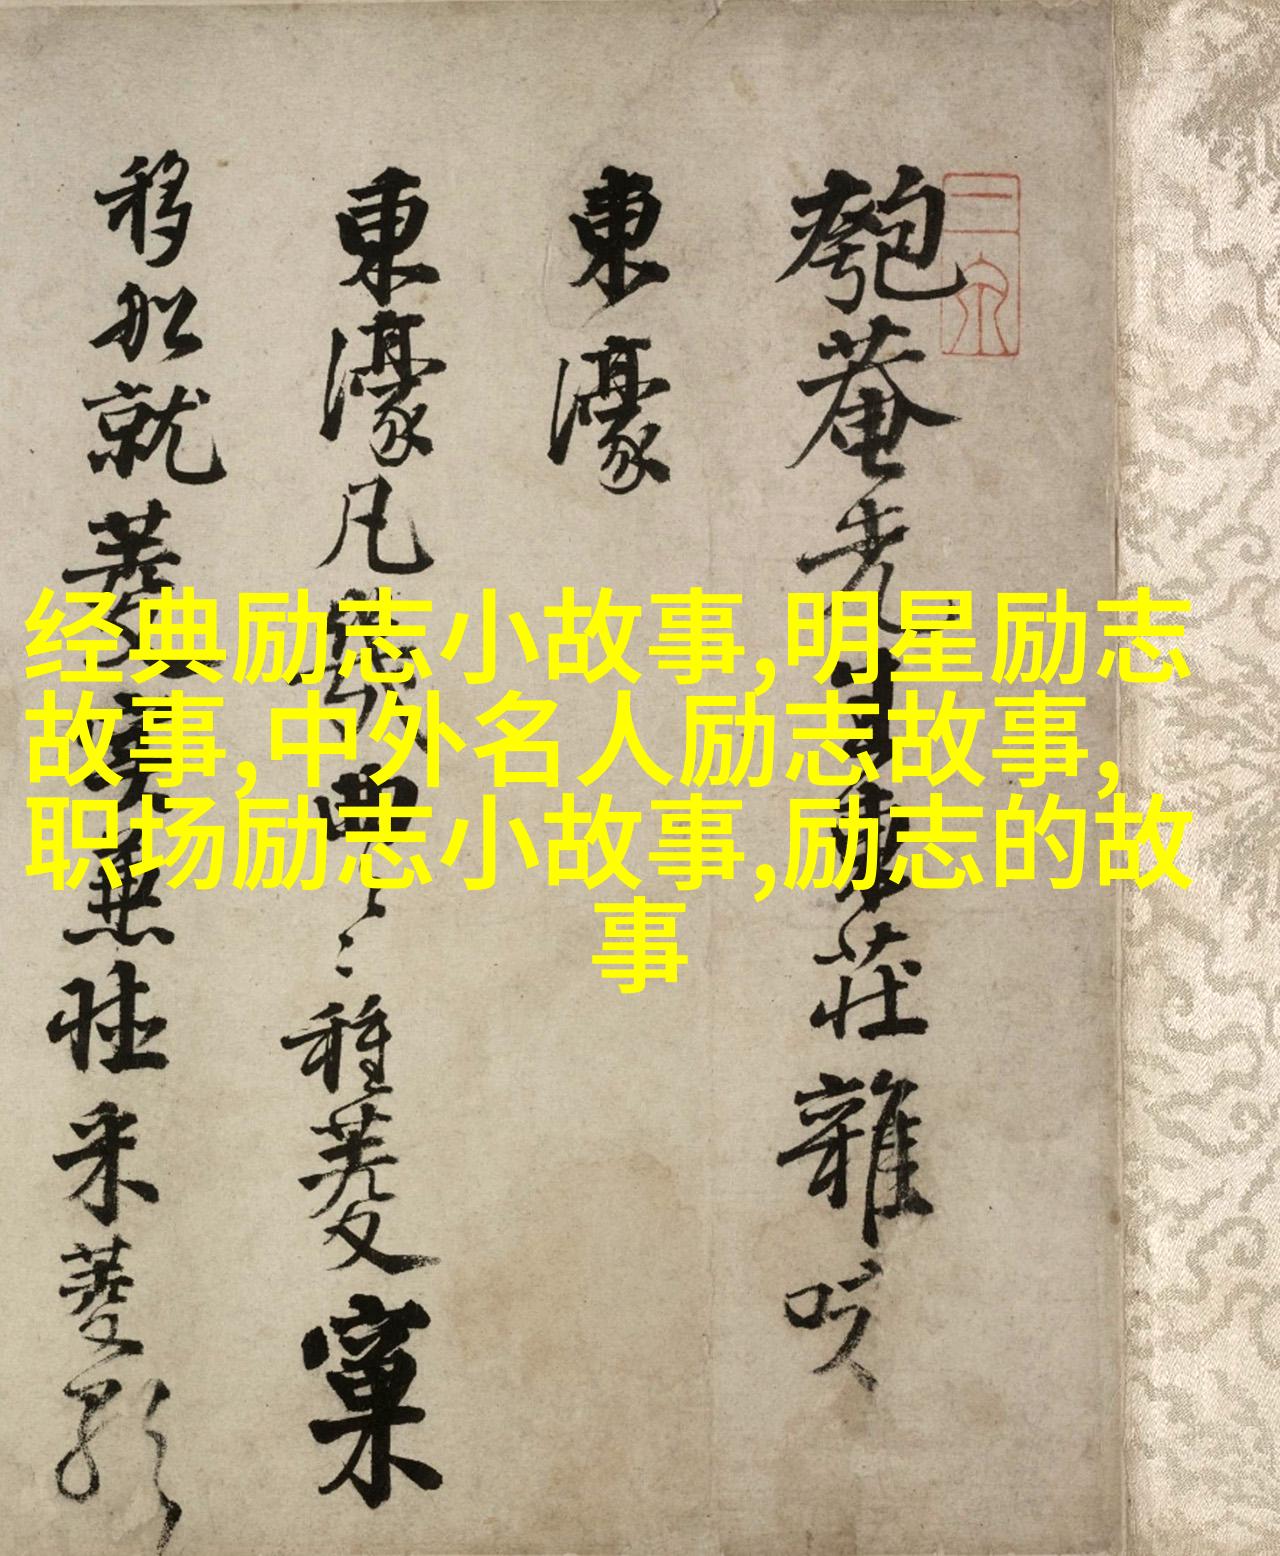 匏菴先生東莊雜咏
東濠
東濠凡幾曲〻種菱窠
移船就菱實無性采菱歌
经典励志小故事,明星励志
故事,中外名人励志故事,
职场励志小故事,励志的故
事